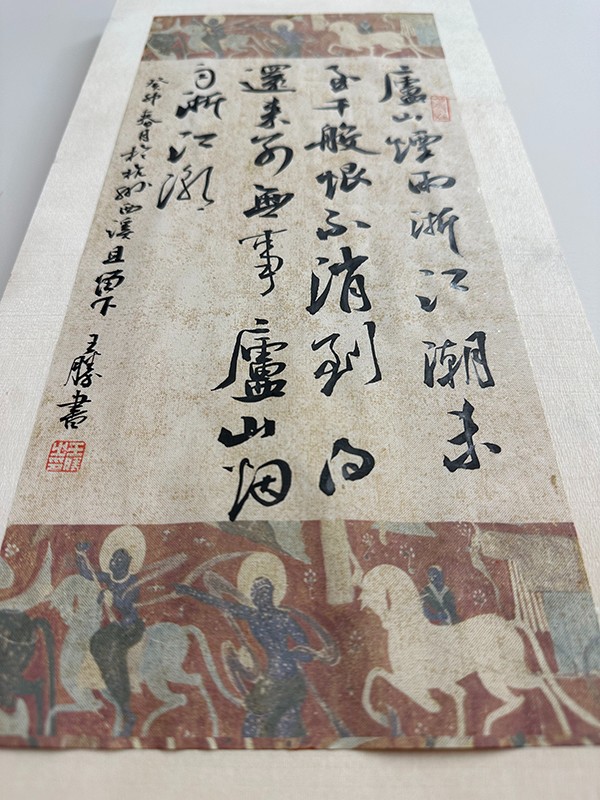 廬山煙雨浙江潮未
至千般恨不消到得
還来别無事廬山烟
雨浙江潮
癸卯春月於杭州西溪且留下 王勝書